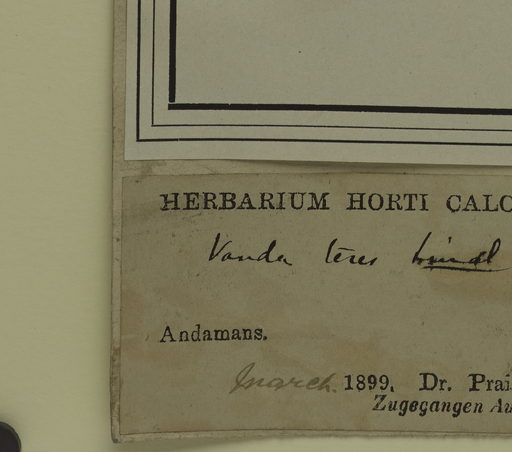 HERBARIUM HORTI CALC
Vanda teres Lindl
Andamans.
March. 1899. Dr. Prai
Zugegangen Au